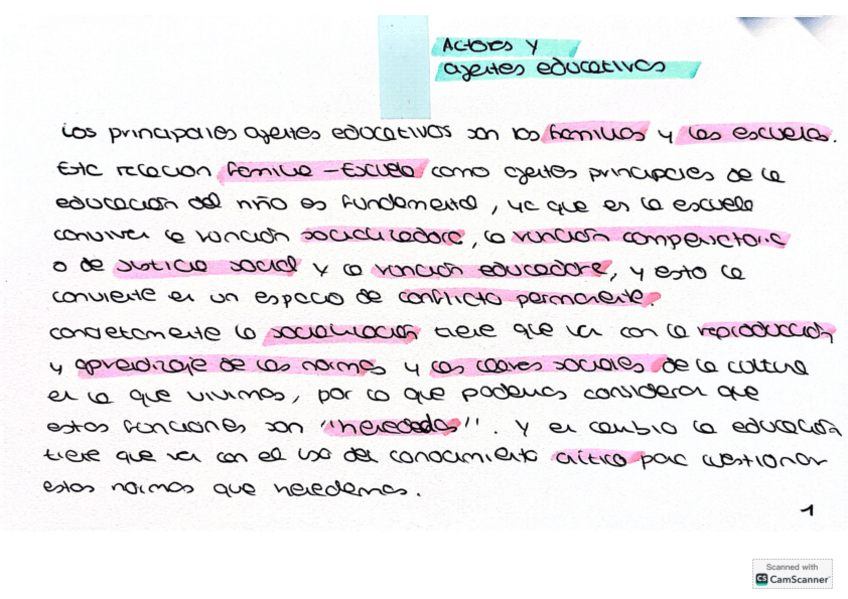 Actores y
agentes educativos
Los principales agentes educativos son las familias y las escuelas.
Esta relación familia - Escuela como agentes principales de la
educación del niño es fundamental, ya que en la escuela
conviven la función socializadora, la función compensatoria
o de justicia social y la función educadora, y esto la
convierte en un espacio de conflicto permanente.
Concretamente la socialización tiene que ver con la reproducción
y aprendizaje de las normas y las claves sociales de la cultura
en la que vivimos, por lo que podemos considerar que
estas funciones son "heredadas". Y en cambio la educación
tiene que ver con el uso del conocimiento crítico para cuestionar
estas normas que heredamos.
1
Scanned with
CS CamScanner